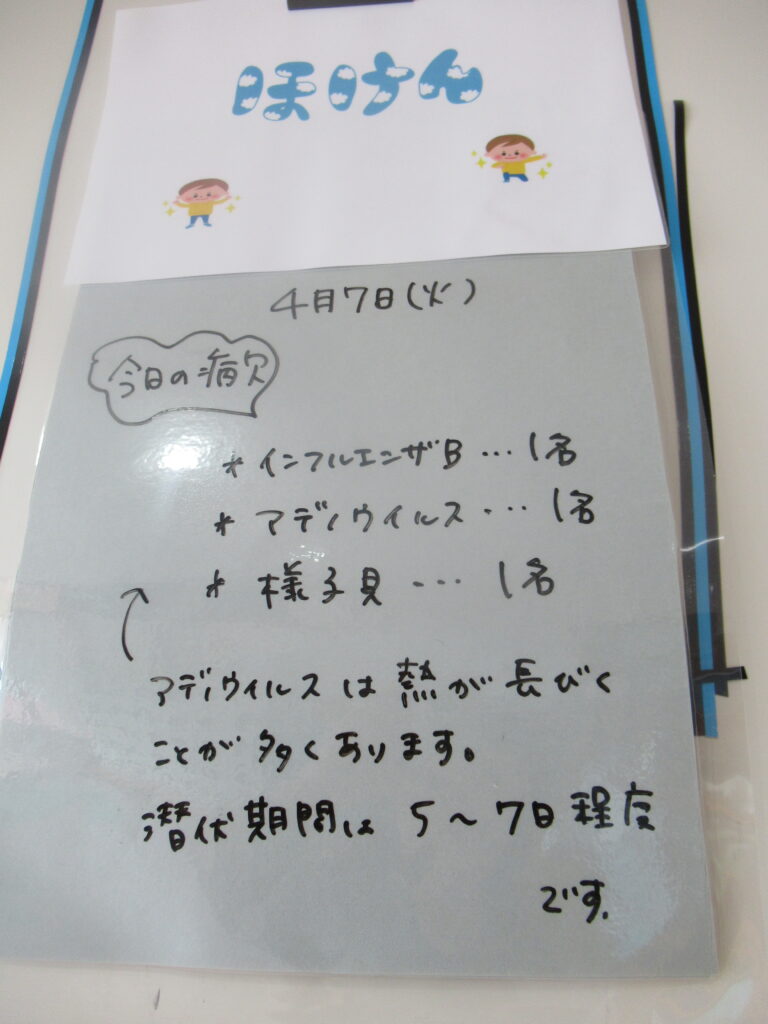 ほけん
4月7日(火)
今日の病欠
* インフルエンザB … 1名
* アデノウイルス … 1名
* 様子見 … 1名
アデノウイルスは熱が長びく
ことが多くあります。
潜伏期間は 5～7日程度
です。